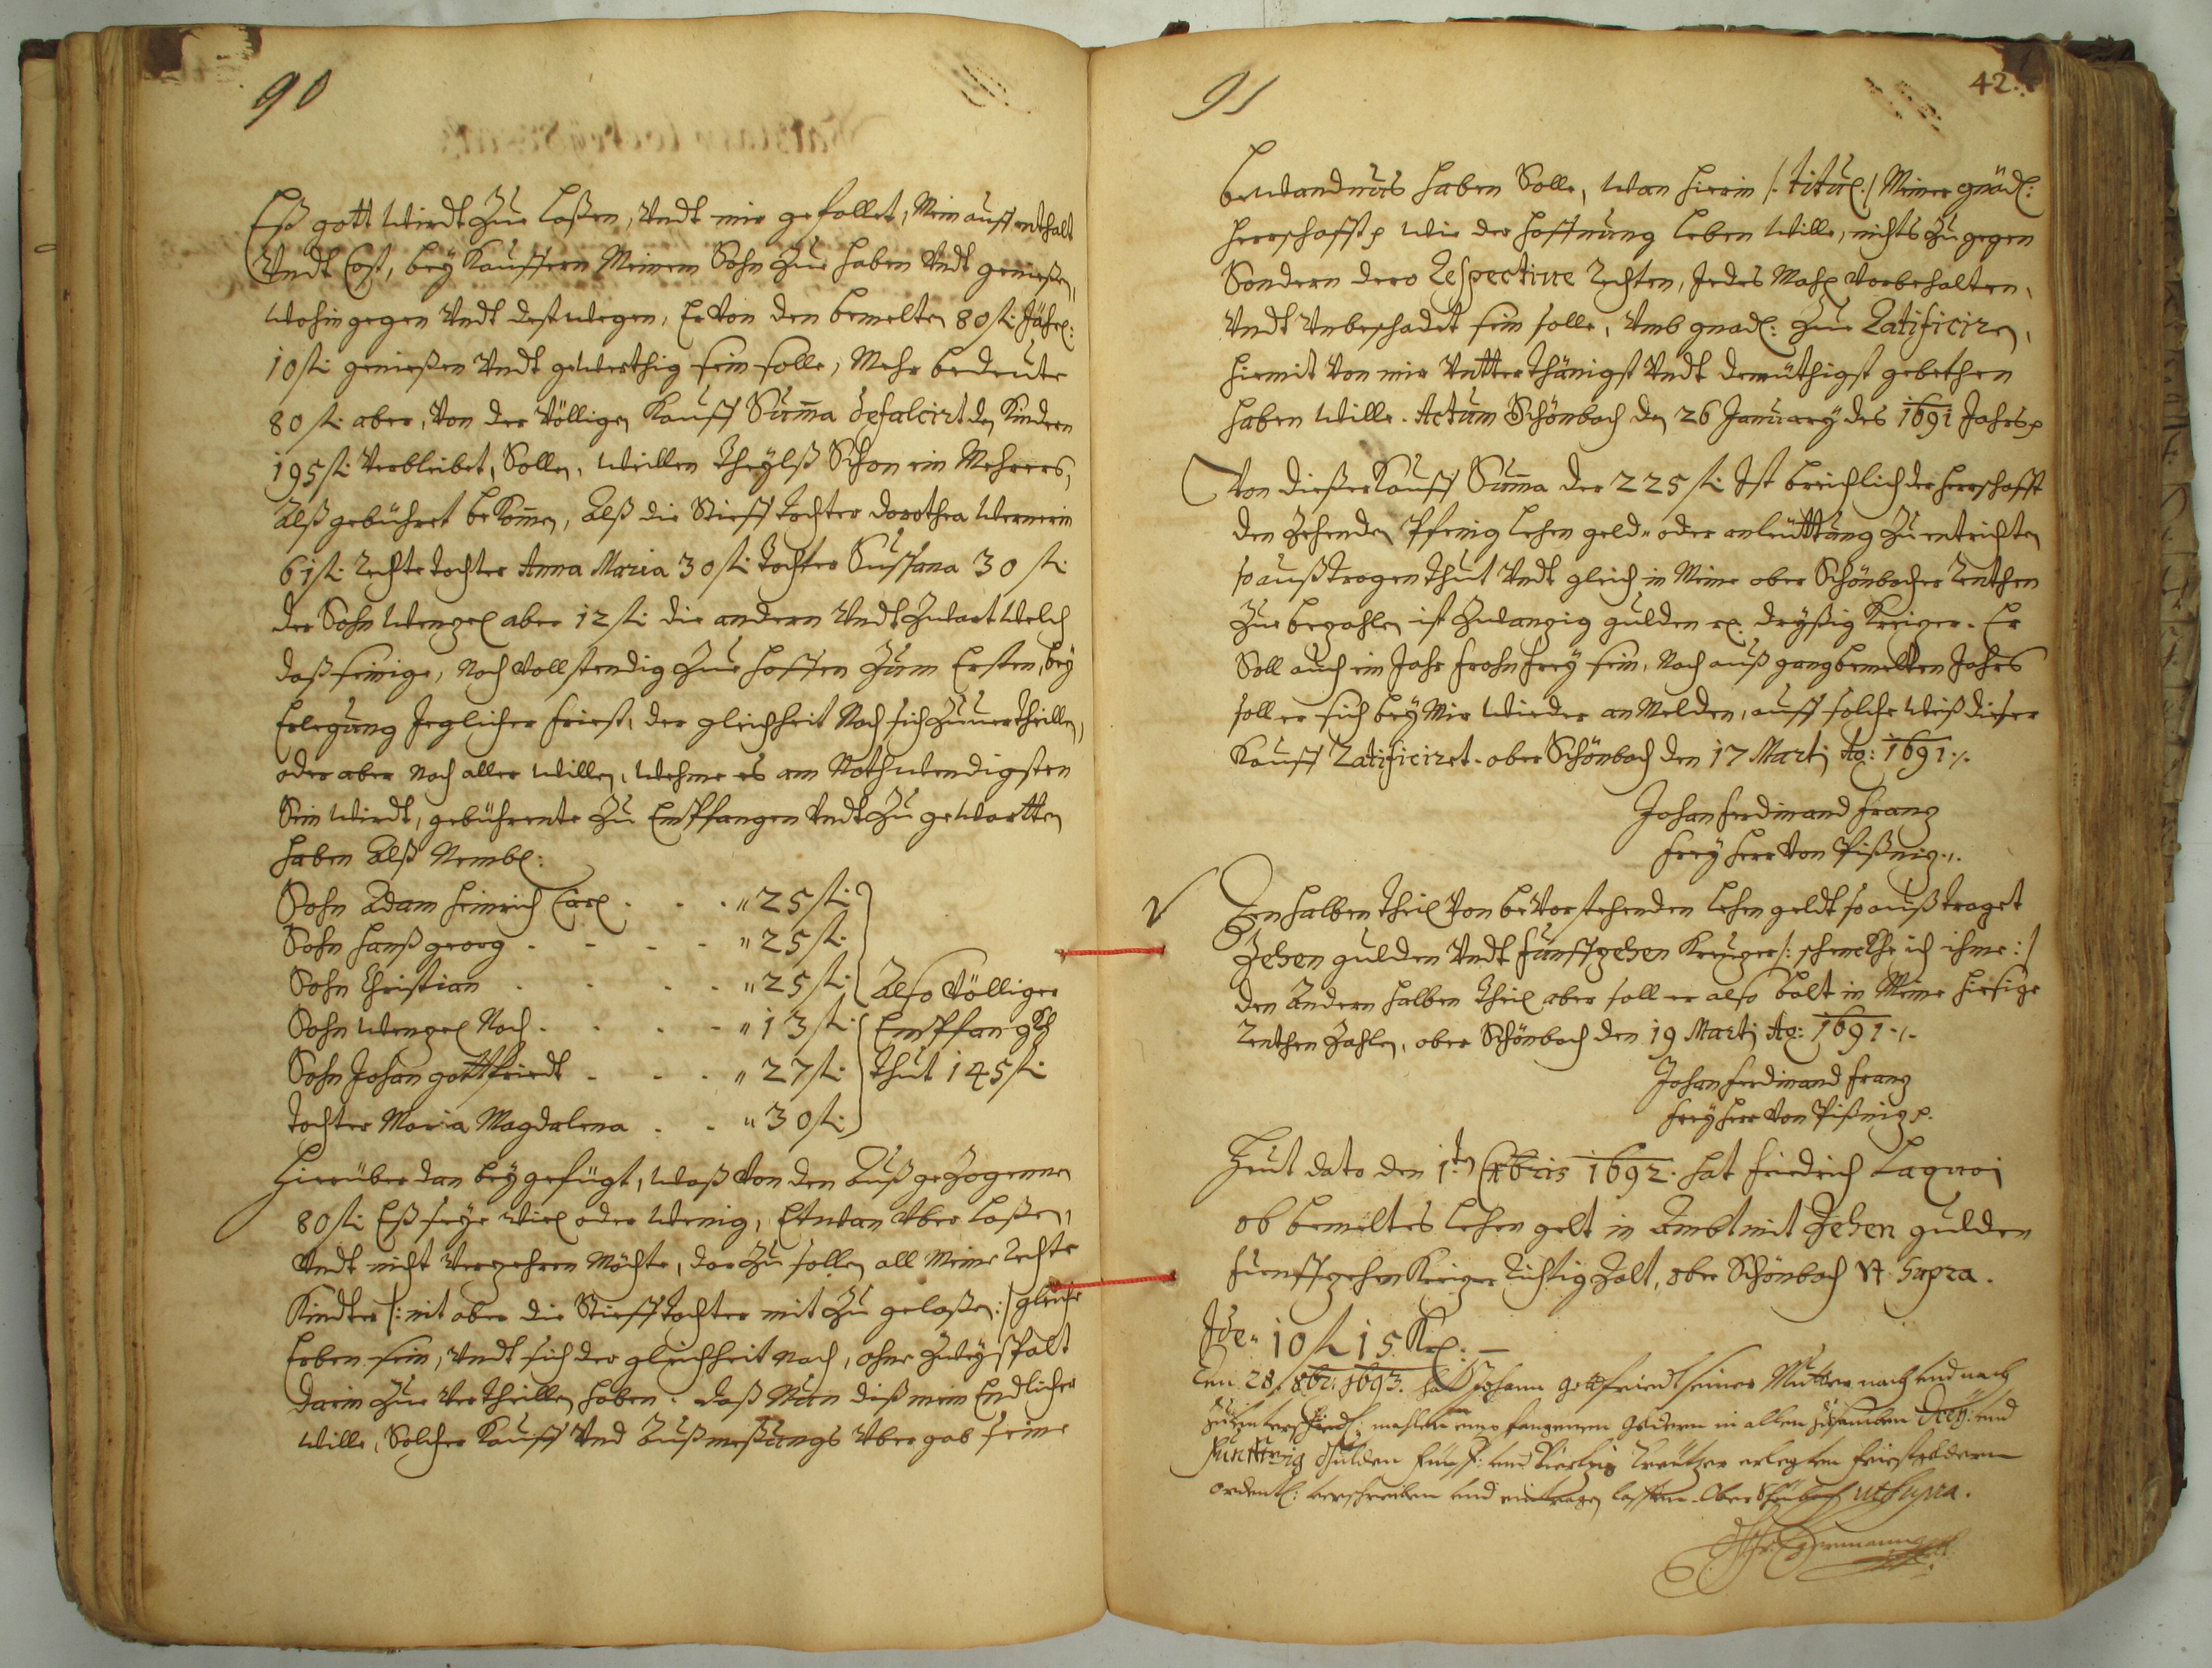 90
Eß gott wirdt Zue laßen, Vndt mir gefellet, Mein auffenthalt
Vndt Cost, bey Kauffern Meinem Sohn Zue haben Vndt genießen,
wohingegen Vndt destwegen, Er Von den bemelten 80 fl: Jährl:
10 fl: genießen Vndt gewerthig sein solle, Mehr bedeute
80 fl: aber, Von der Völligen Kauff Suma defalcirt den Kindern
195 fl: Verbleibet, Solle, weillen theylß Schon ein Mehrers,
Alß gebühret bekomen, Alß die Stieff tochter Dorothea Wernerin
61 fl: Rechte tochter Anna Maria 30 fl: tochter Sussana 30 fl:
der Sohn Wenzel aber 12 fl: die andern Vndt Zwart welch
daß seinige, Noch Vollstendig Zue hoffen Zum Ersten, bey
Erlegung Jeglicher friest, der gleichheit Nach sich Zuuertheillen,
oder aber nach aller willen, wehme es am Nothwendigsten
Sein wirdt, gebührente Zu Empfangen Vndt Zu gewartten
haben Alß Nembl:
Sohn Adam Heinrich Carl . . . " 25 fl:
Sohn Hanß georg . - - - " 25 fl:
Sohn Christian . . . . " 25 fl: Also Völliger
Sohn Wenzel Noch . . . - " 13 fl: Empfang
Sohn Johan gottfriedt . - . " 27 fl: thut 145 fl:
tochter Maria Magdalena . . " 30 fl:
Hierüber dan beygefügt, waß Von den Außgezogenen
80 fl: Eß seye Viel oder wenig, Etwan Vber laßen,
Vndt nicht Verzehren Möchte, dar Zu sollen all Meine Rechte
Kindter /: nit aber die Stiefftochter mit Zu gelaßen :/ gleiche
Erben sein, Vndt sich der gleichheit nach, ohne Zweyspalt
darin Zue Vertheillen haben. daß Nun diß mein Endlicher
wille, Solcher Kauff Vnd Außmeßungs Vbergab seine
91
42.
bewandnus haben Solle, wan hierin /: titul :/ Meiner gnädl:
Herrschafft wie der Hoffnung leben wille, nichts Zugegen
Sondern dero Respective Rechten, Jedes Mahl Vorbehalten,
Vndt Vnbeschadet sein solle, Vmb gnadl: Zue Ratificiren,
hiemit Von mir Vntterthänigst Vndt demüthigst gebethen
haben wille. Actum Schönbach den 26 January des 1691 Jahrs
Von dießer Kauff Suma der 225 fl: Ist breichlich der Herrschafft
den Zehenden Pfenig Lehen geld= oder anleüttung Zu entrichten
so außtragen thut Vndt gleich in Meine ober Schönbacher Renthen
Zue bezahlen ist Zwanzig gulden dryßig Kreizer. Er
Soll auch ein Jahr frohn frey sein, Nach außgang bemelten Jahrs
soll er sich bey Mir wieder an Melden, auff solche weiß dieser
Kauff Ratificiret. ober Schönbach den 17 Martj Ao: 1691 ./.
Johan Ferdinand Frantz
Frey Herr Von Pißnig ./.
Den halben theil Von beVorstehenden Lehen geldt so außtraget
Zehen gulden Vndt funffzehen Kreuzer /: schencke ich ihme :/
den Andern halben theil aber soll er also balt in Meine hiesige
Renthen Zahlen. ober Schönbach den 19 Martj Ao: 1691 ./.
Johan Ferdinand Frantz
Frey Herr Von Pißnig
Heut dato den 1ten Xbris 1692. hat Friedrich Laqwoj
ob bemeltes Lehen gelt in Ambt mit Zehen gulden
funffzehen Kreizer Richtig Zalt, ober Schönbach Vt Supra.
Ide: 10 fl 15 Krl: —
Den 28. 8br: 1693. hat Johann Gottfriedt seiner Mutter nach und nach
zu Unterschiedl: mahlen empfangenen geldern in allen zusamben Drey: und
funfftzig Gulden fünff: und Viertzig Kreützer erlegten friestgeldern
ordentl: verschreiben und eintragen lassen. Ober Schönbach ut supra.